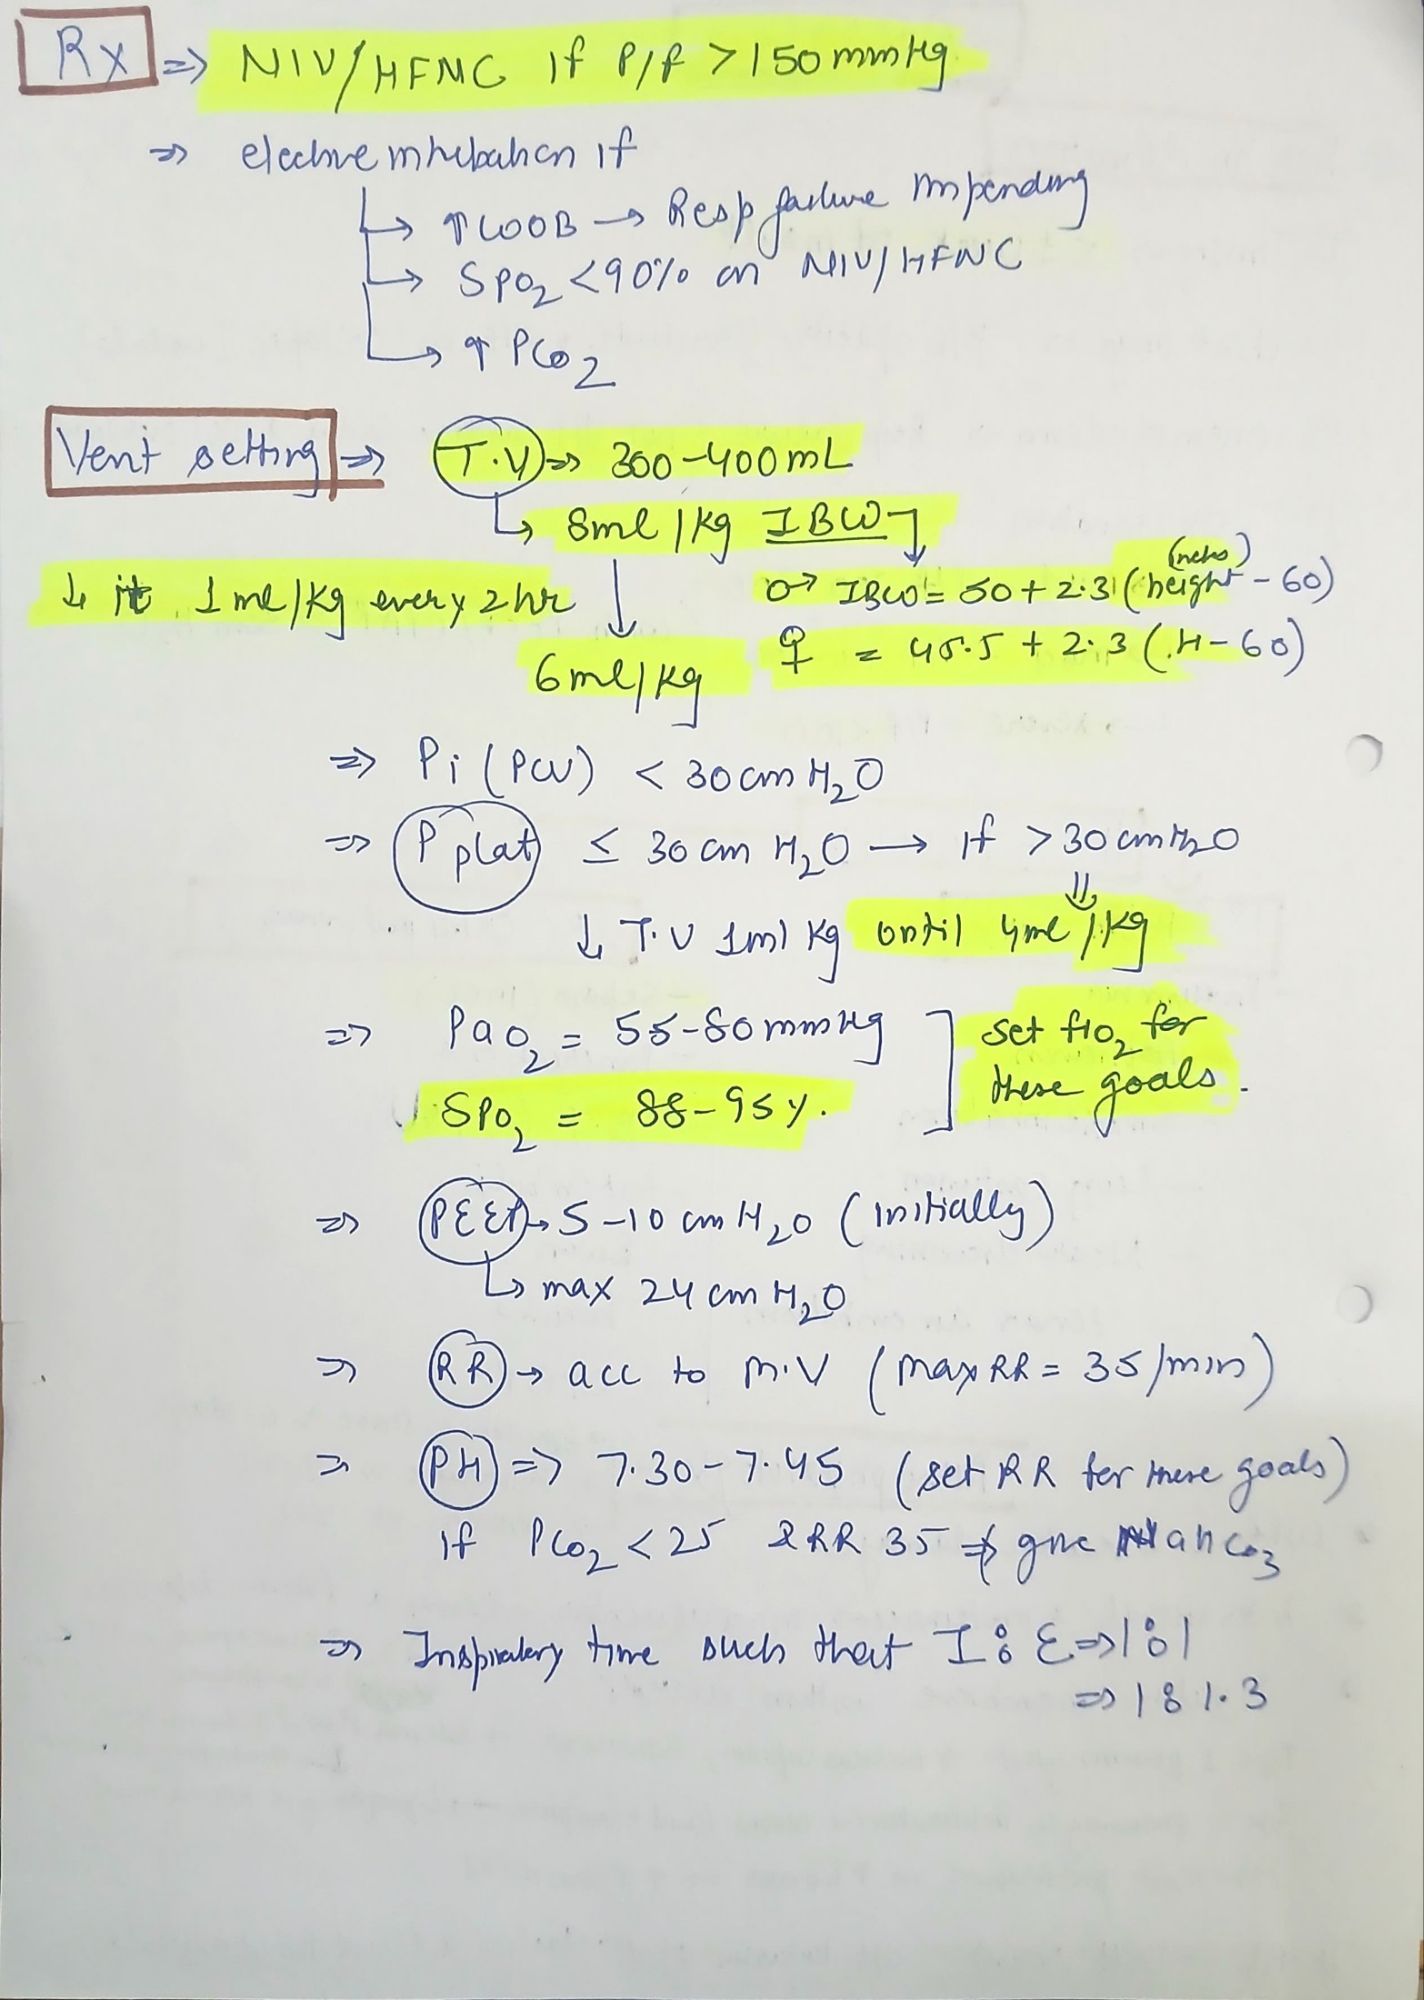 Rx ⇒ NIV/HFNC if P/F > 150 mmHg
⇒ elective intubation if
↳ ↑WOOB → Resp failure impending
↳ SPO2 <90% on NIV/HFNC
↳ ↑ PCO2
Vent setting ⇒ T.V ⇒ 300-400mL
↳ 8ml/kg IBW
↓ it 1ml/kg every 2hr
♂ IBW = 50 + 2.3 (height (inches) - 60)
♀ = 45.5 + 2.3 (H-60)
6ml/kg
⇒ Pi (PCV) < 30cm H2O
⇒ P plat ≤ 30 cm H2O → if > 30 cmH2O
↓ T.V 1ml kg until 4ml/kg
⇒ PaO2 = 55-80mmHg ] Set fiO2 for
SPO2 = 88-95%. these goals.
⇒ PEEP → 5-10 cm H2O (initially)
↳ max 24 cm H2O
⇒ RR → acc to M.V (max RR = 35/min)
⇒ PH ⇒ 7.30-7.45 (set RR for these goals)
if PCO2 < 25 & RR 35 ⇒ give NaHCO3
⇒ Inspiratory time such that I:E ⇒ 1:1
⇒ 1:1.3